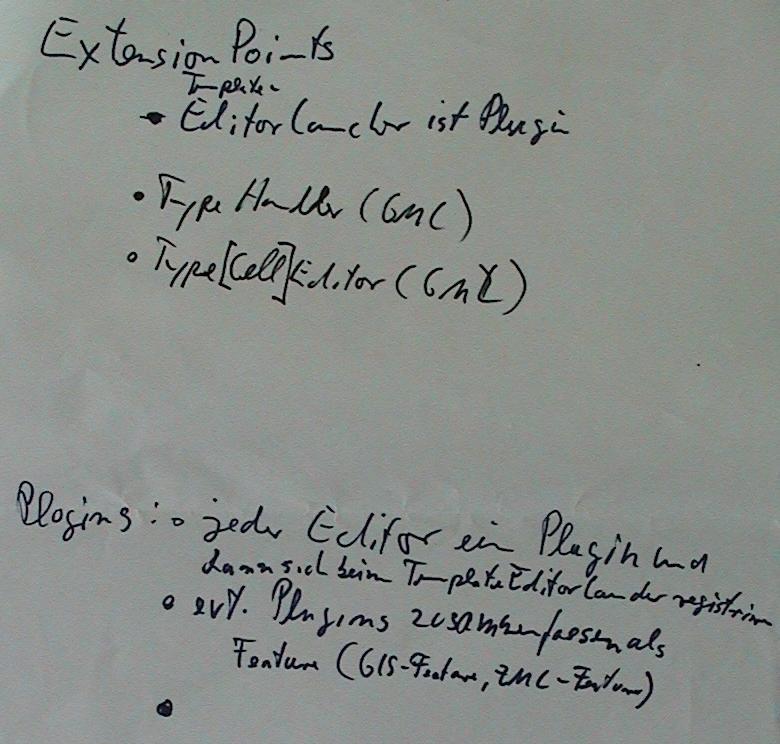 Extension Points
Template
• Editor Launcher ist Plugin
• Type Handler (GMC)
• Type[Cell]Editor (GML)
Plugins: • jeder Editor ein Plugin und
kann sich beim TemplateEditorLauncher registrieren
• evt. Plugins zusammenfassen als
Feature (GIS-Feature, EMC-Feature)
•